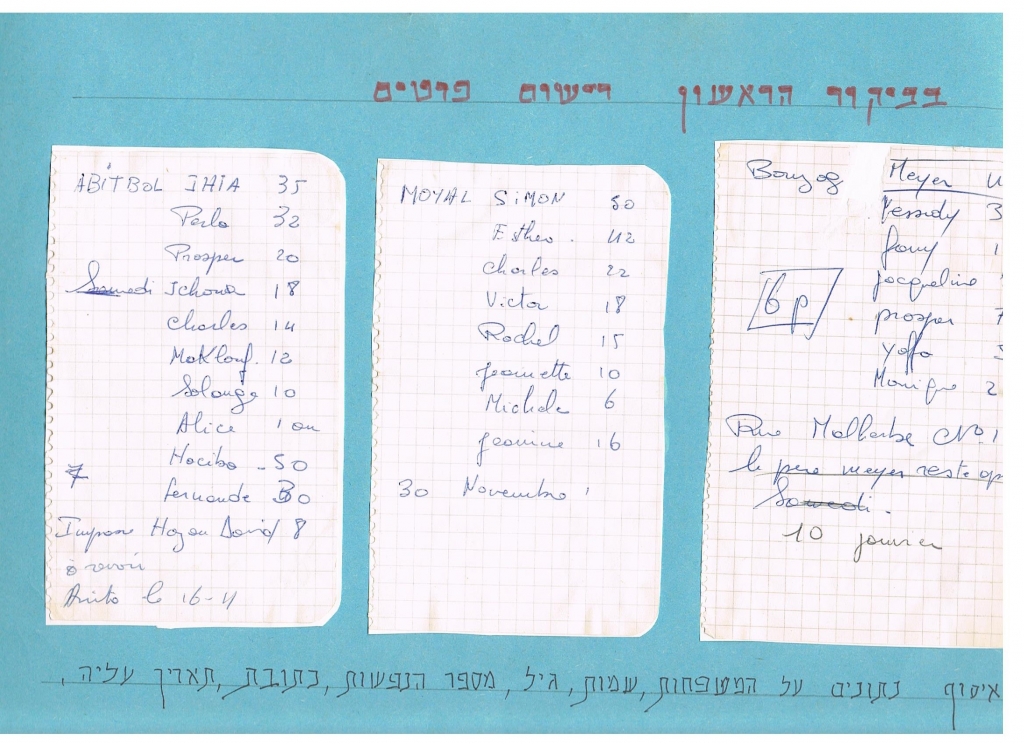 בביקור הראשון רישום פרטים
ABITBOL IHIA 35
Perla 32
Prosper 20
Samedi Ichoua 18
Charles 14
Maklouf 12
Solange 10
Alice 1 an
Haciba 50
7
Fernande 30
Impasse Hazan David 8
à revoir
le 16-11
MOYAL SIMON 50
Esther 42
Charles 22
Victor 18
Rachel 15
Jeannette 10
Michele 6
Jeanine 16
30 Novembre
Meyer
Fanny 1
Jacqueline
6 p
prosper 7
Yaffa
Monique 2
Rue Malherbe No 1
le pere meyer reste
Samedi.
10 janvier
איסוף נתונים על המשפחות, שמות, גיל, מספר הנפשות, כתובת, תאריך עליה,